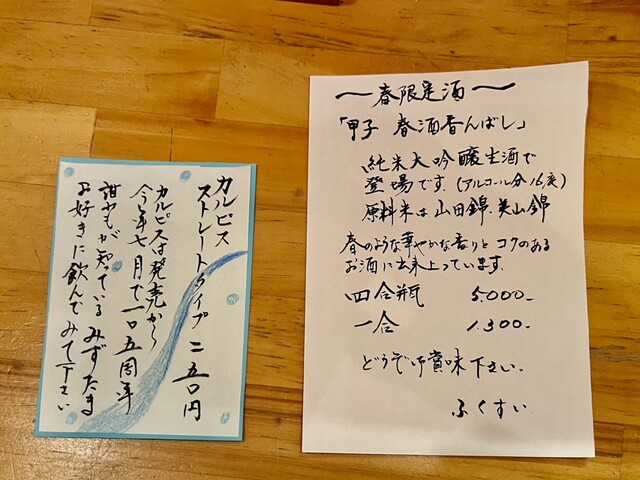 カルピス
ストレートタイプ 二五〇円
カルピスは発売から
今年七月で一〇五周年
誰もが知っている みずたま
お好きに飲んでみて下さい
〜春限定酒〜
「甲子 春酒香んばし」
純米大吟醸生酒で
登場です.(アルコール分16度)
原料米は山田錦.美山錦
春のような華やかな香りとコクのある
お酒に出来上っています.
四合瓶 5.000-
一合 1.300-
どうぞ御賞味下さい.
ふくすい